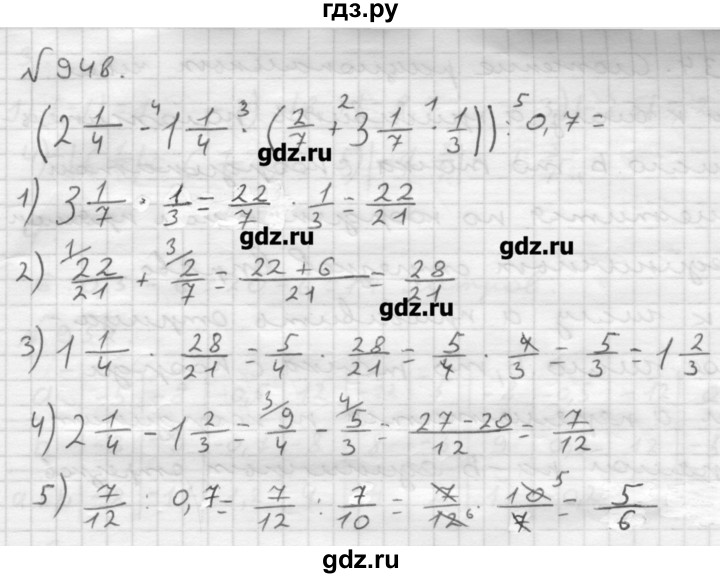 гдз.ру
№948.
(2 1/4 - 1 1/4 · (2/7 + 3 1/7 · 1/3)) : 0,7 =
gdz.ru
1) 3 1/7 · 1/3 = 22/7 · 1/3 = 22/21
gdz.ru
gdz.ru
2) 22/21 + 2/7 = (22 + 6)/21 = 28/21
gdz.ru
3) 1 1/4 · 28/21 = 5/4 · 28/21 = 5/4 · 4/3 = 5/3 = 1 2/3
4) 2 1/4 - 1 2/3 = 9/4 - 5/3 = (27 - 20)/12 = 7/12
5) 7/12 : 0,7 = 7/12 : 7/10 = 7/12 · 10/7 = 5/6
gdz.ru